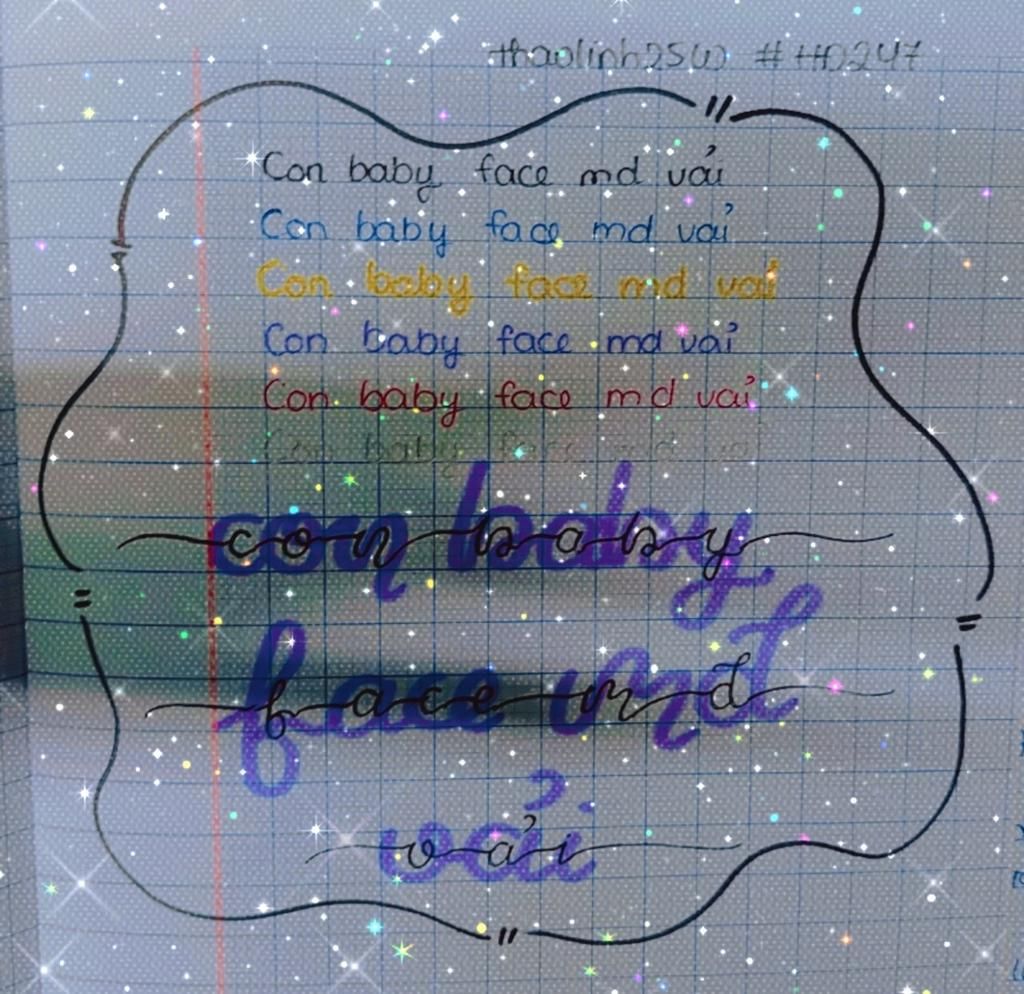 thaolinh25w #HD247
Con baby face md vải
Con baby face md vải
Con baby face md vải
Con baby face md vải
Con baby face md vải
Con baby face md vải
con baby
face md
vải